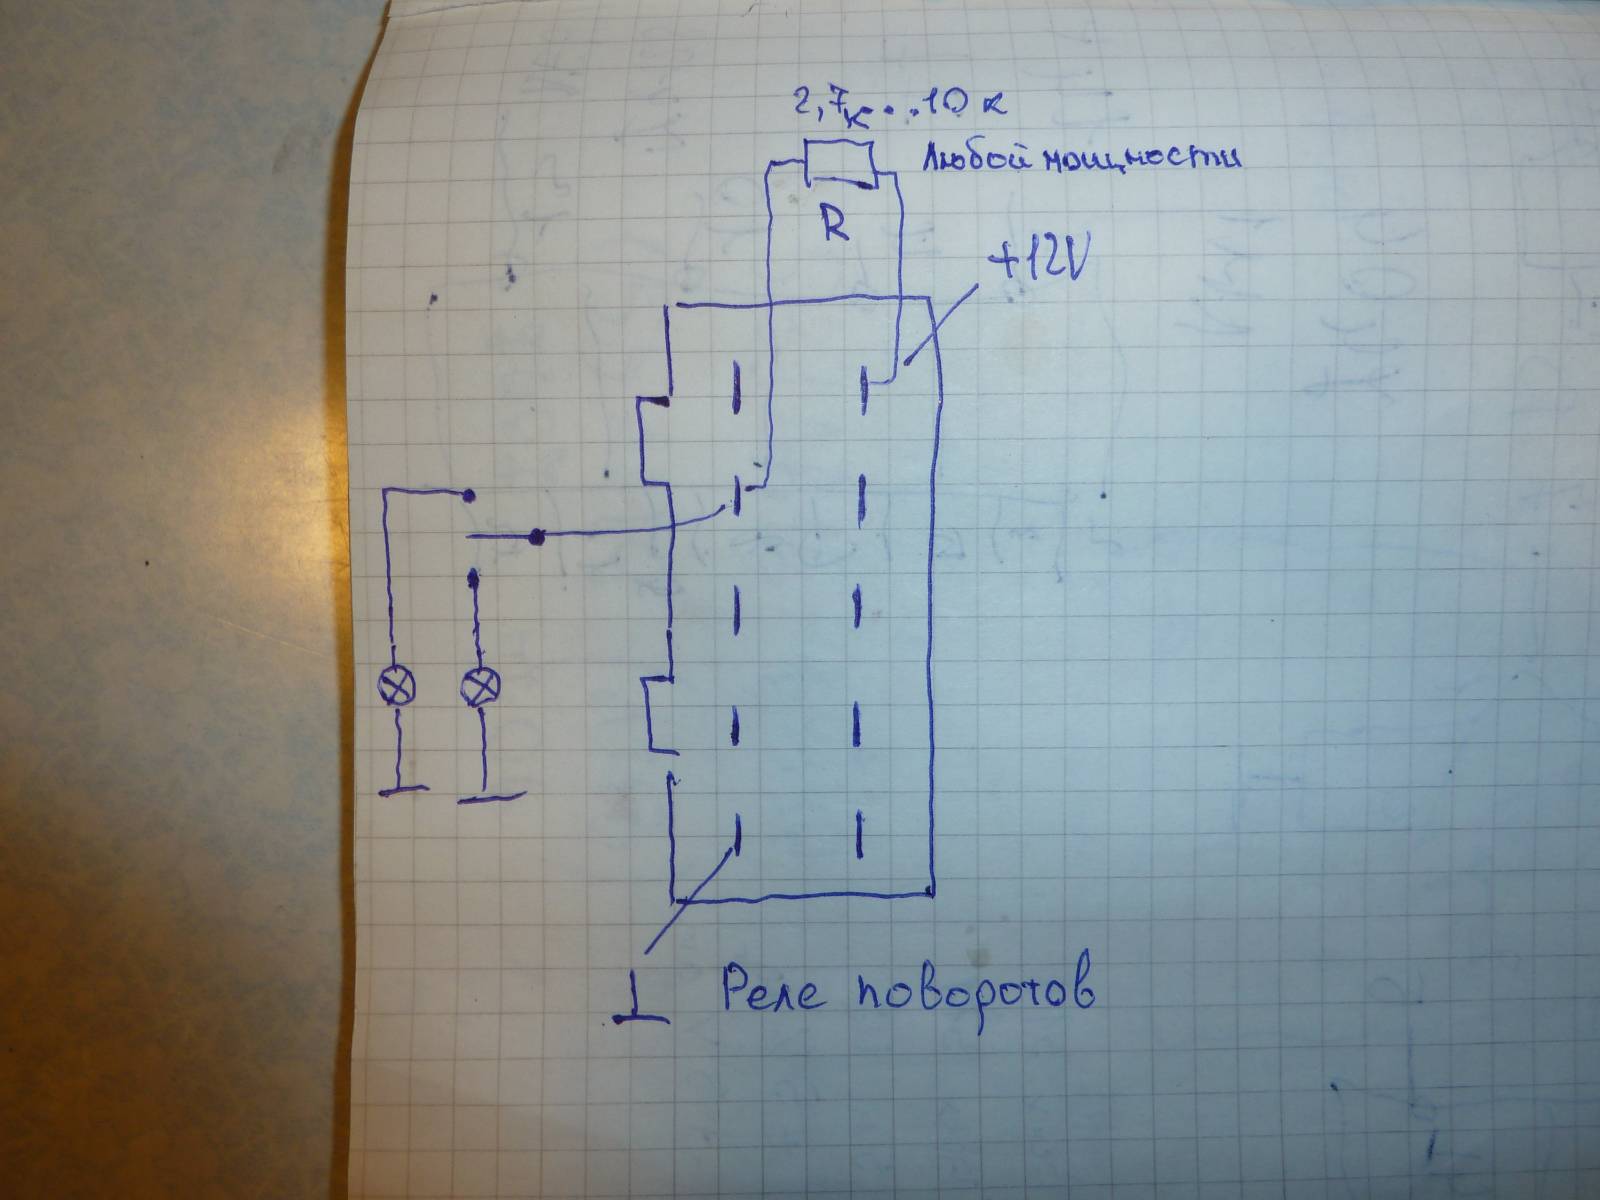 2,7к...10к
Любой мощности
R
+12V
Реле поворотов